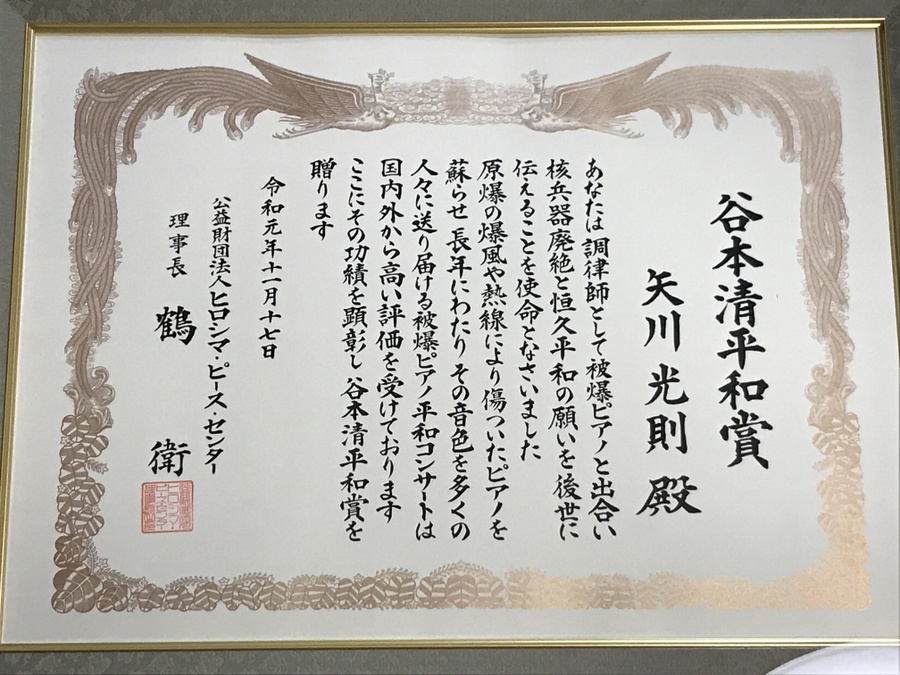 谷本清平和賞
矢川光則 殿
あなたは調律師として被爆ピアノと出合い
核兵器廃絶と恒久平和の願いを後世に
伝えることを使命となさいました
原爆の爆風や熱線により傷ついたピアノを
蘇らせ 長年にわたりその音色を多くの
人々に送り届ける被爆ピアノ平和コンサートは
国内外から高い評価を受けております
ここにその功績を顕彰し 谷本清平和賞を
贈ります
令和元年十一月十七日
公益財団法人ヒロシマ・ピース・センター
理事長 鶴 衛